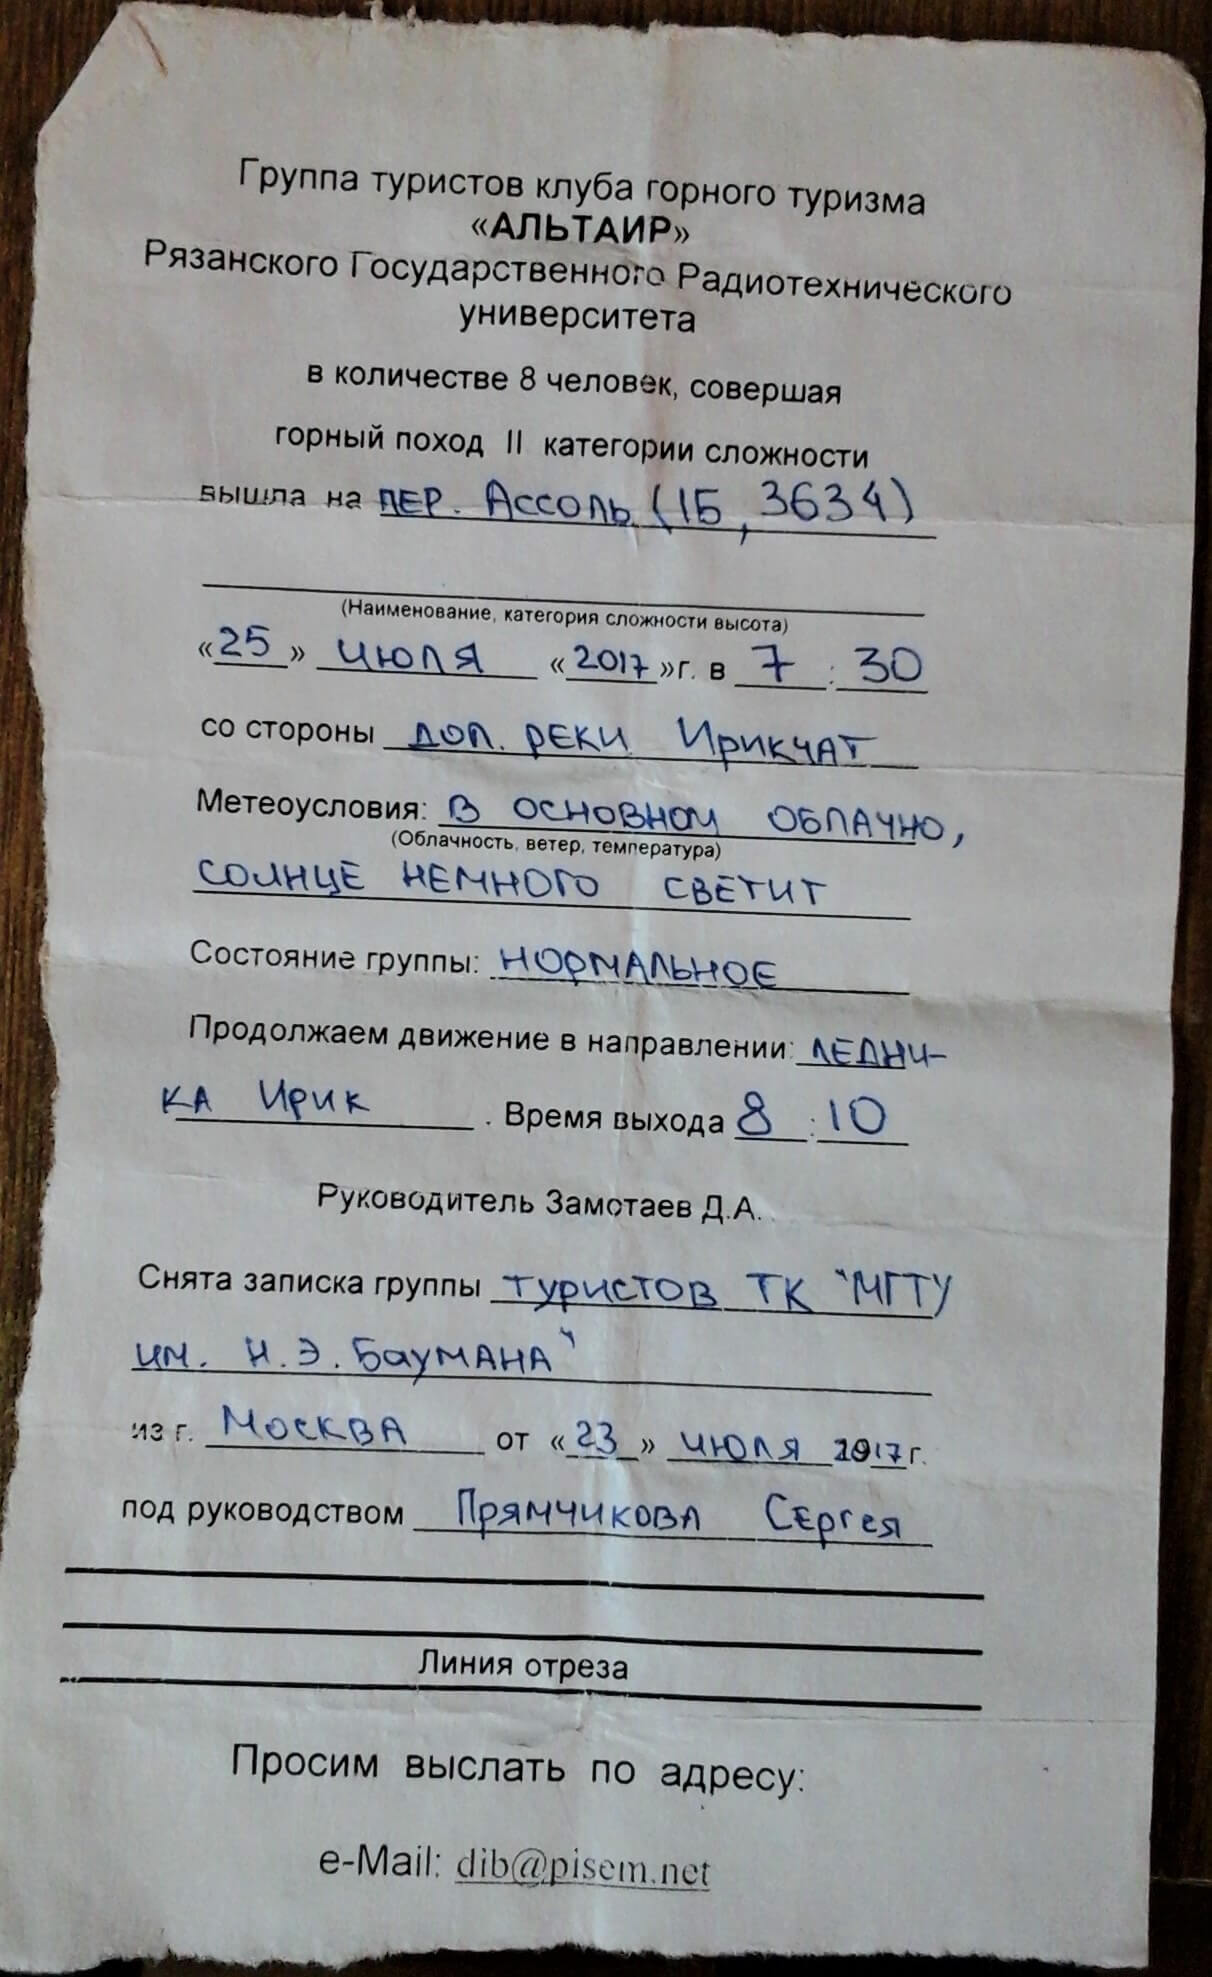 Группа туристов клуба горного туризма
«АЛЬТАИР»
Рязанского Государственного Радиотехнического
университета
в количестве 8 человек, совершая
горный поход II категории сложности
вышла на ПЕР. Ассоль (1Б, 3634)
(Наименование, категория сложности высота)
«25» июля «2017»г. в 7 : 30
со стороны дол. реки Ирикчат
Метеоусловия: В основном облачно,
(Облачность, ветер, температура)
солнце немного светит
Состояние группы: нормальное
Продолжаем движение в направлении: ледни-
ка Ирик . Время выхода 8 : 10
Руководитель Замотаев Д.А.
Снята записка группы туристов ТК "МГТУ
им. Н.Э. Баумана"
из г. Москва от «23» июля 2017г.
под руководством Прямчикова Сергея
Линия отреза
Просим выслать по адресу:
e-Mail: dib@pisem.net